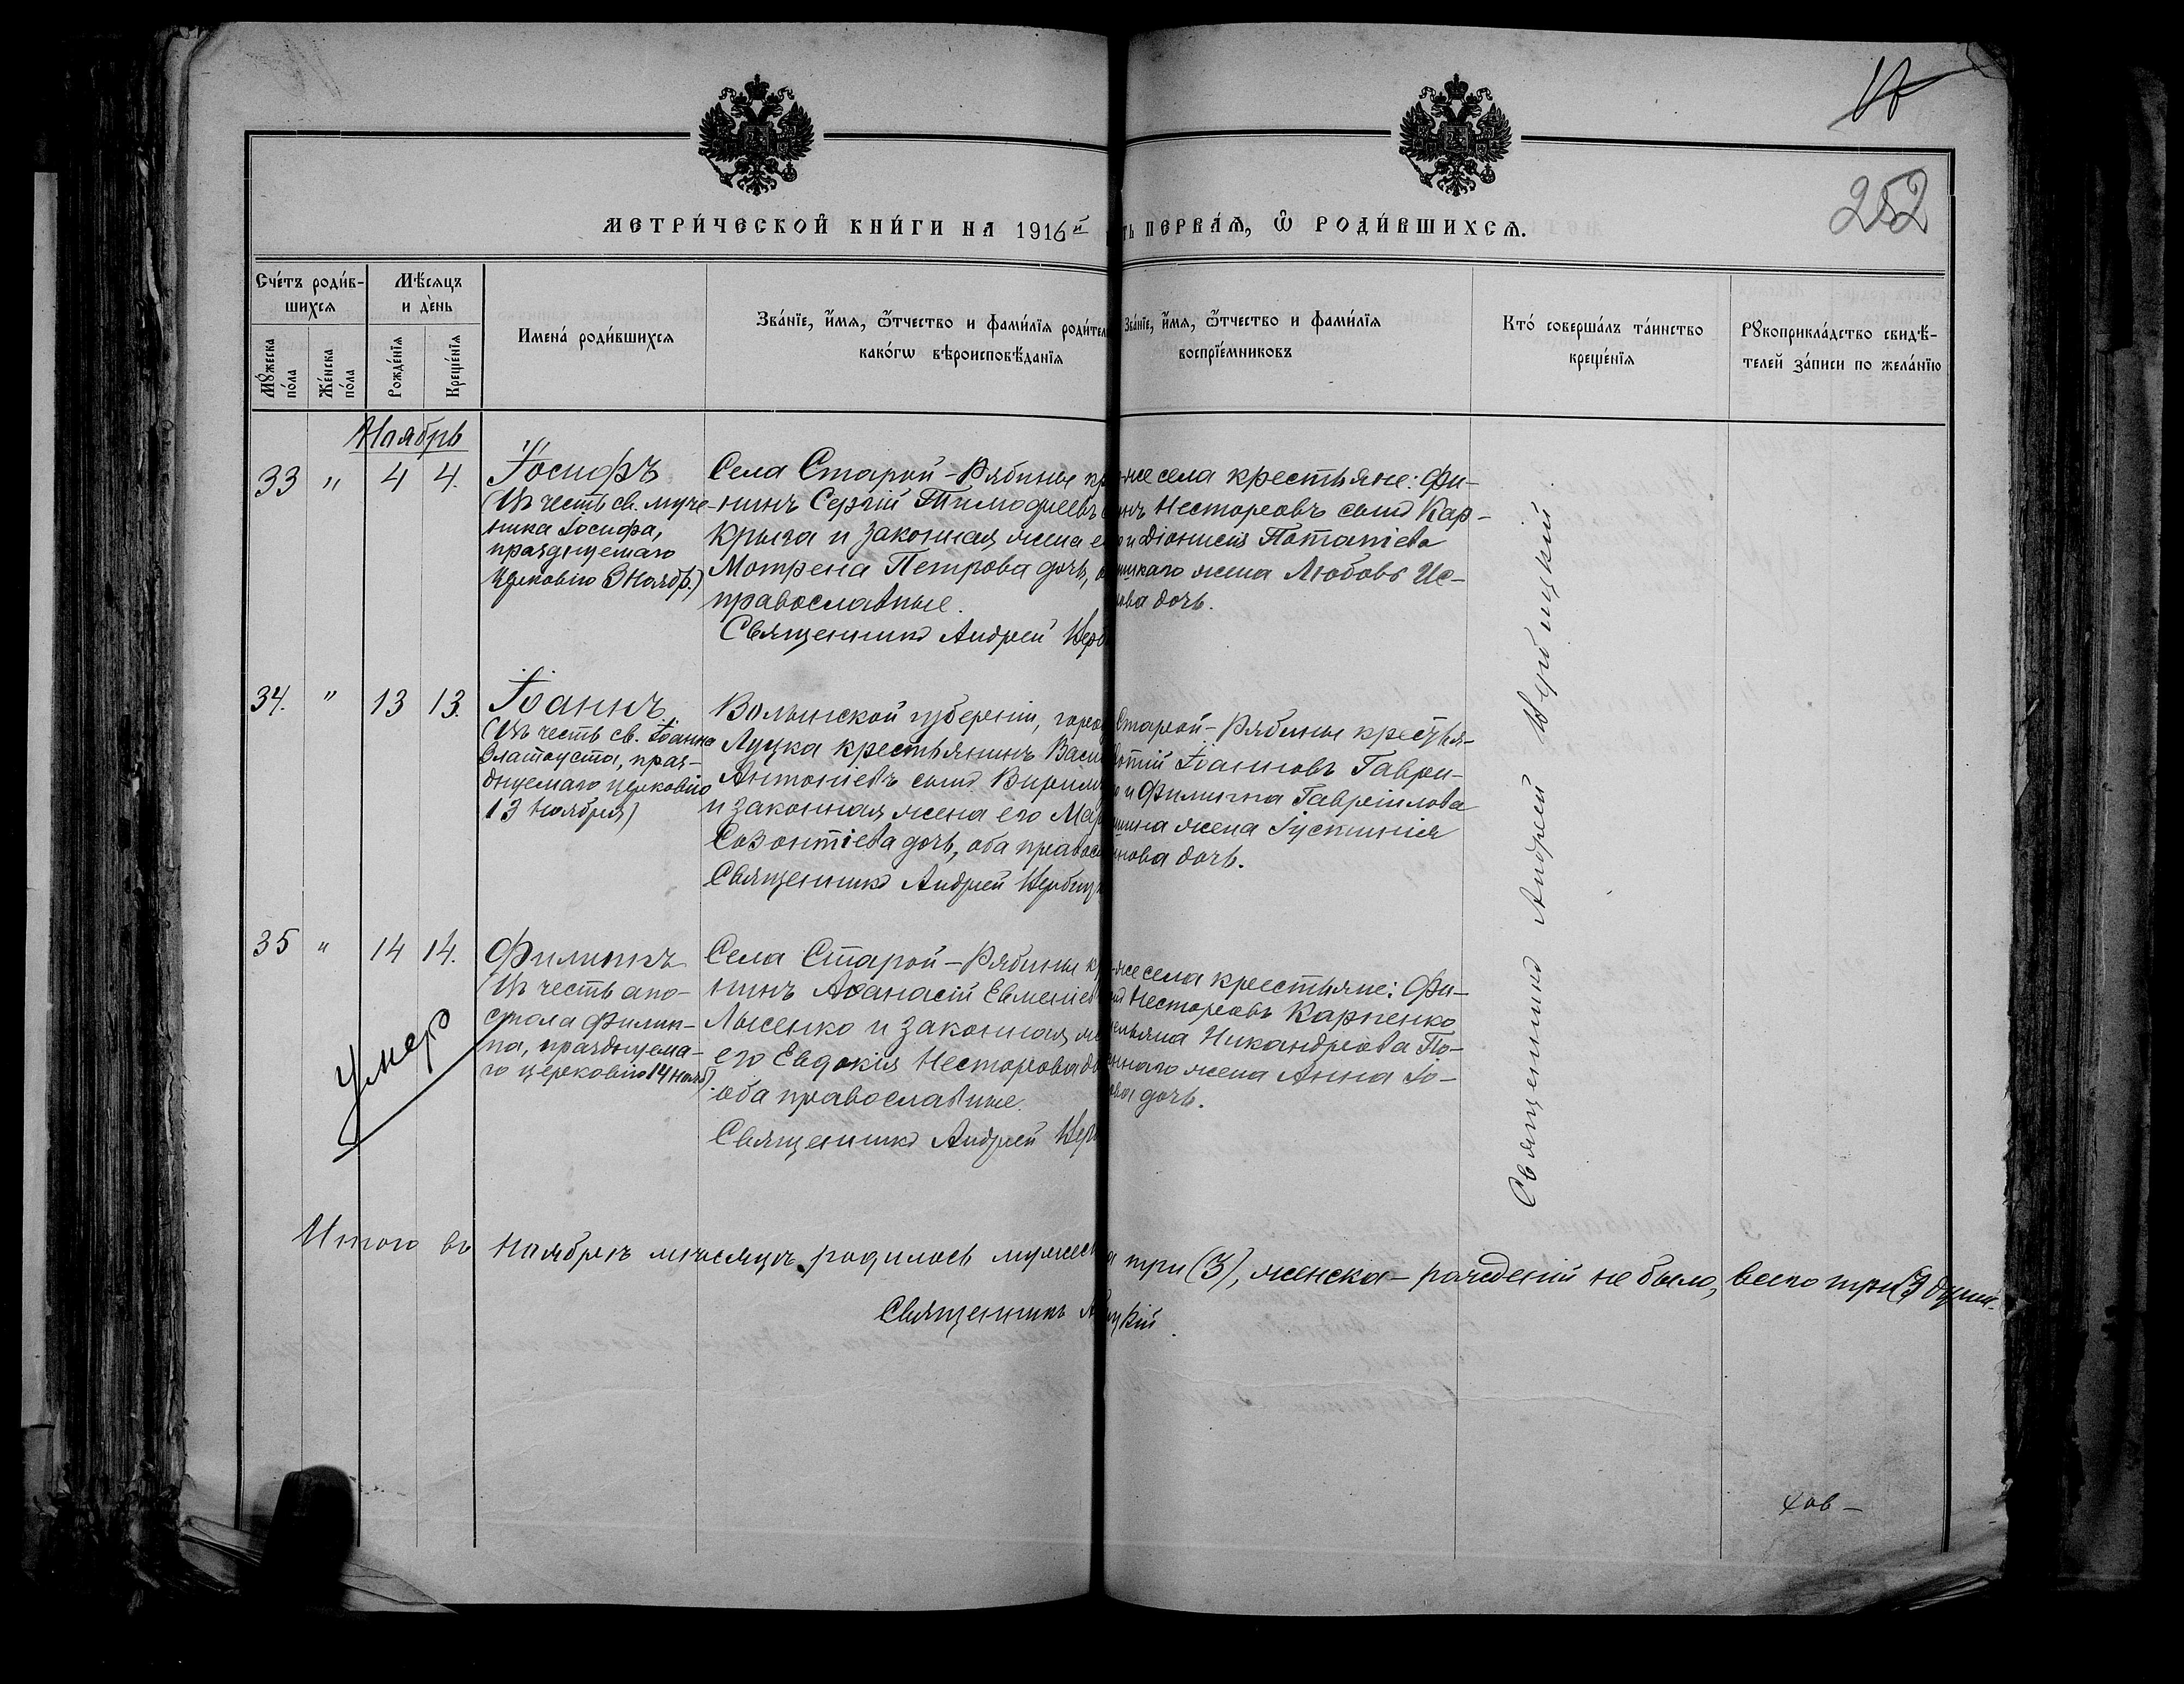 252
МЕТРИ́ЧЕСКОЙ КНИ́ГИ НА 1916й ть ПЕРВАЯ, Ѿ РОДИ́ВШИХСЯ.
Сче́тъ роди́в-
шихся
Мꙋ́жеска по́ла
Же́нска по́ла
Мѣ́сяцъ
и де́нь
Рожде́нїя
Креще́нїя
Имена́ роди́вшихся
Зва́нїе, и́мя, ѻ҆́тчество и фами́лїя родител
како́гѡ вѣроисповѣ́данїя
Зва́нїе, и́мя, ѻ҆́тчество и фами́лїя
воспрїе́мниковъ
Кто́ соверша́лъ та́инство
креще́нїя
Рꙋкоприкла́дство свидѣ́-
телей за́писи по жела́нїю
Ноябрь
33 " 4 4.
Іосифъ
(Въ честь св. муче-
ника Іосифа,
празднуемаго
Церковію 3 Ноябр.)
Села Старой-Рябины кр
нинъ Сергій Тимофеевъ
Крыга и законная жена е
Мотрена Петрова дочь, о
православные.
Священникъ Андрей Верб
же села крестьяне: Фи-
нъ Несторовъ сынъ Кар-
и Діонисія Потапіева
цкаго жена Любовь Ис-
ова дочь.
34. " 13 13.
Іоаннъ
(Въ честь св. Іоанна
Златоуста, праз-
днуемаго церковію
13 Ноября)
Волынской губерніи, город
Луцка крестьянинъ Васи
Антоніевъ сынъ
и законная жена его Мар
Созонтіева дочь, оба правосл
Священникъ Андрей Вербиц
Старой-Рябины крестья-
тій Іоанновъ Гаври-
и Филиппа Гавріилова
шина жена Іустинія
нова дочь.
35 " 14 14.
Умер
Филиппъ
(Въ честь апо-
стола Филип-
па, празднуема-
го церковію 14 нояб.)
Села Старой-Рябины кр
нинъ Аѳанасій Евменіев
Лысенко и законная же
его Евдокія Несторова до
оба православные.
Священникъ Андрей Вер
же села крестьяне: Фи-
Несторовъ Карпенко
ельяна Никандрова По-
ннаго жена Анна Іо-
ова дочь.
Священникъ Андрей Вербицкій
Итого въ Ноябрѣ мѣсяцѣ родилось мужеск а три (3), женска - рожденій не было, всего три (3) души.
Священникъ А цкій.